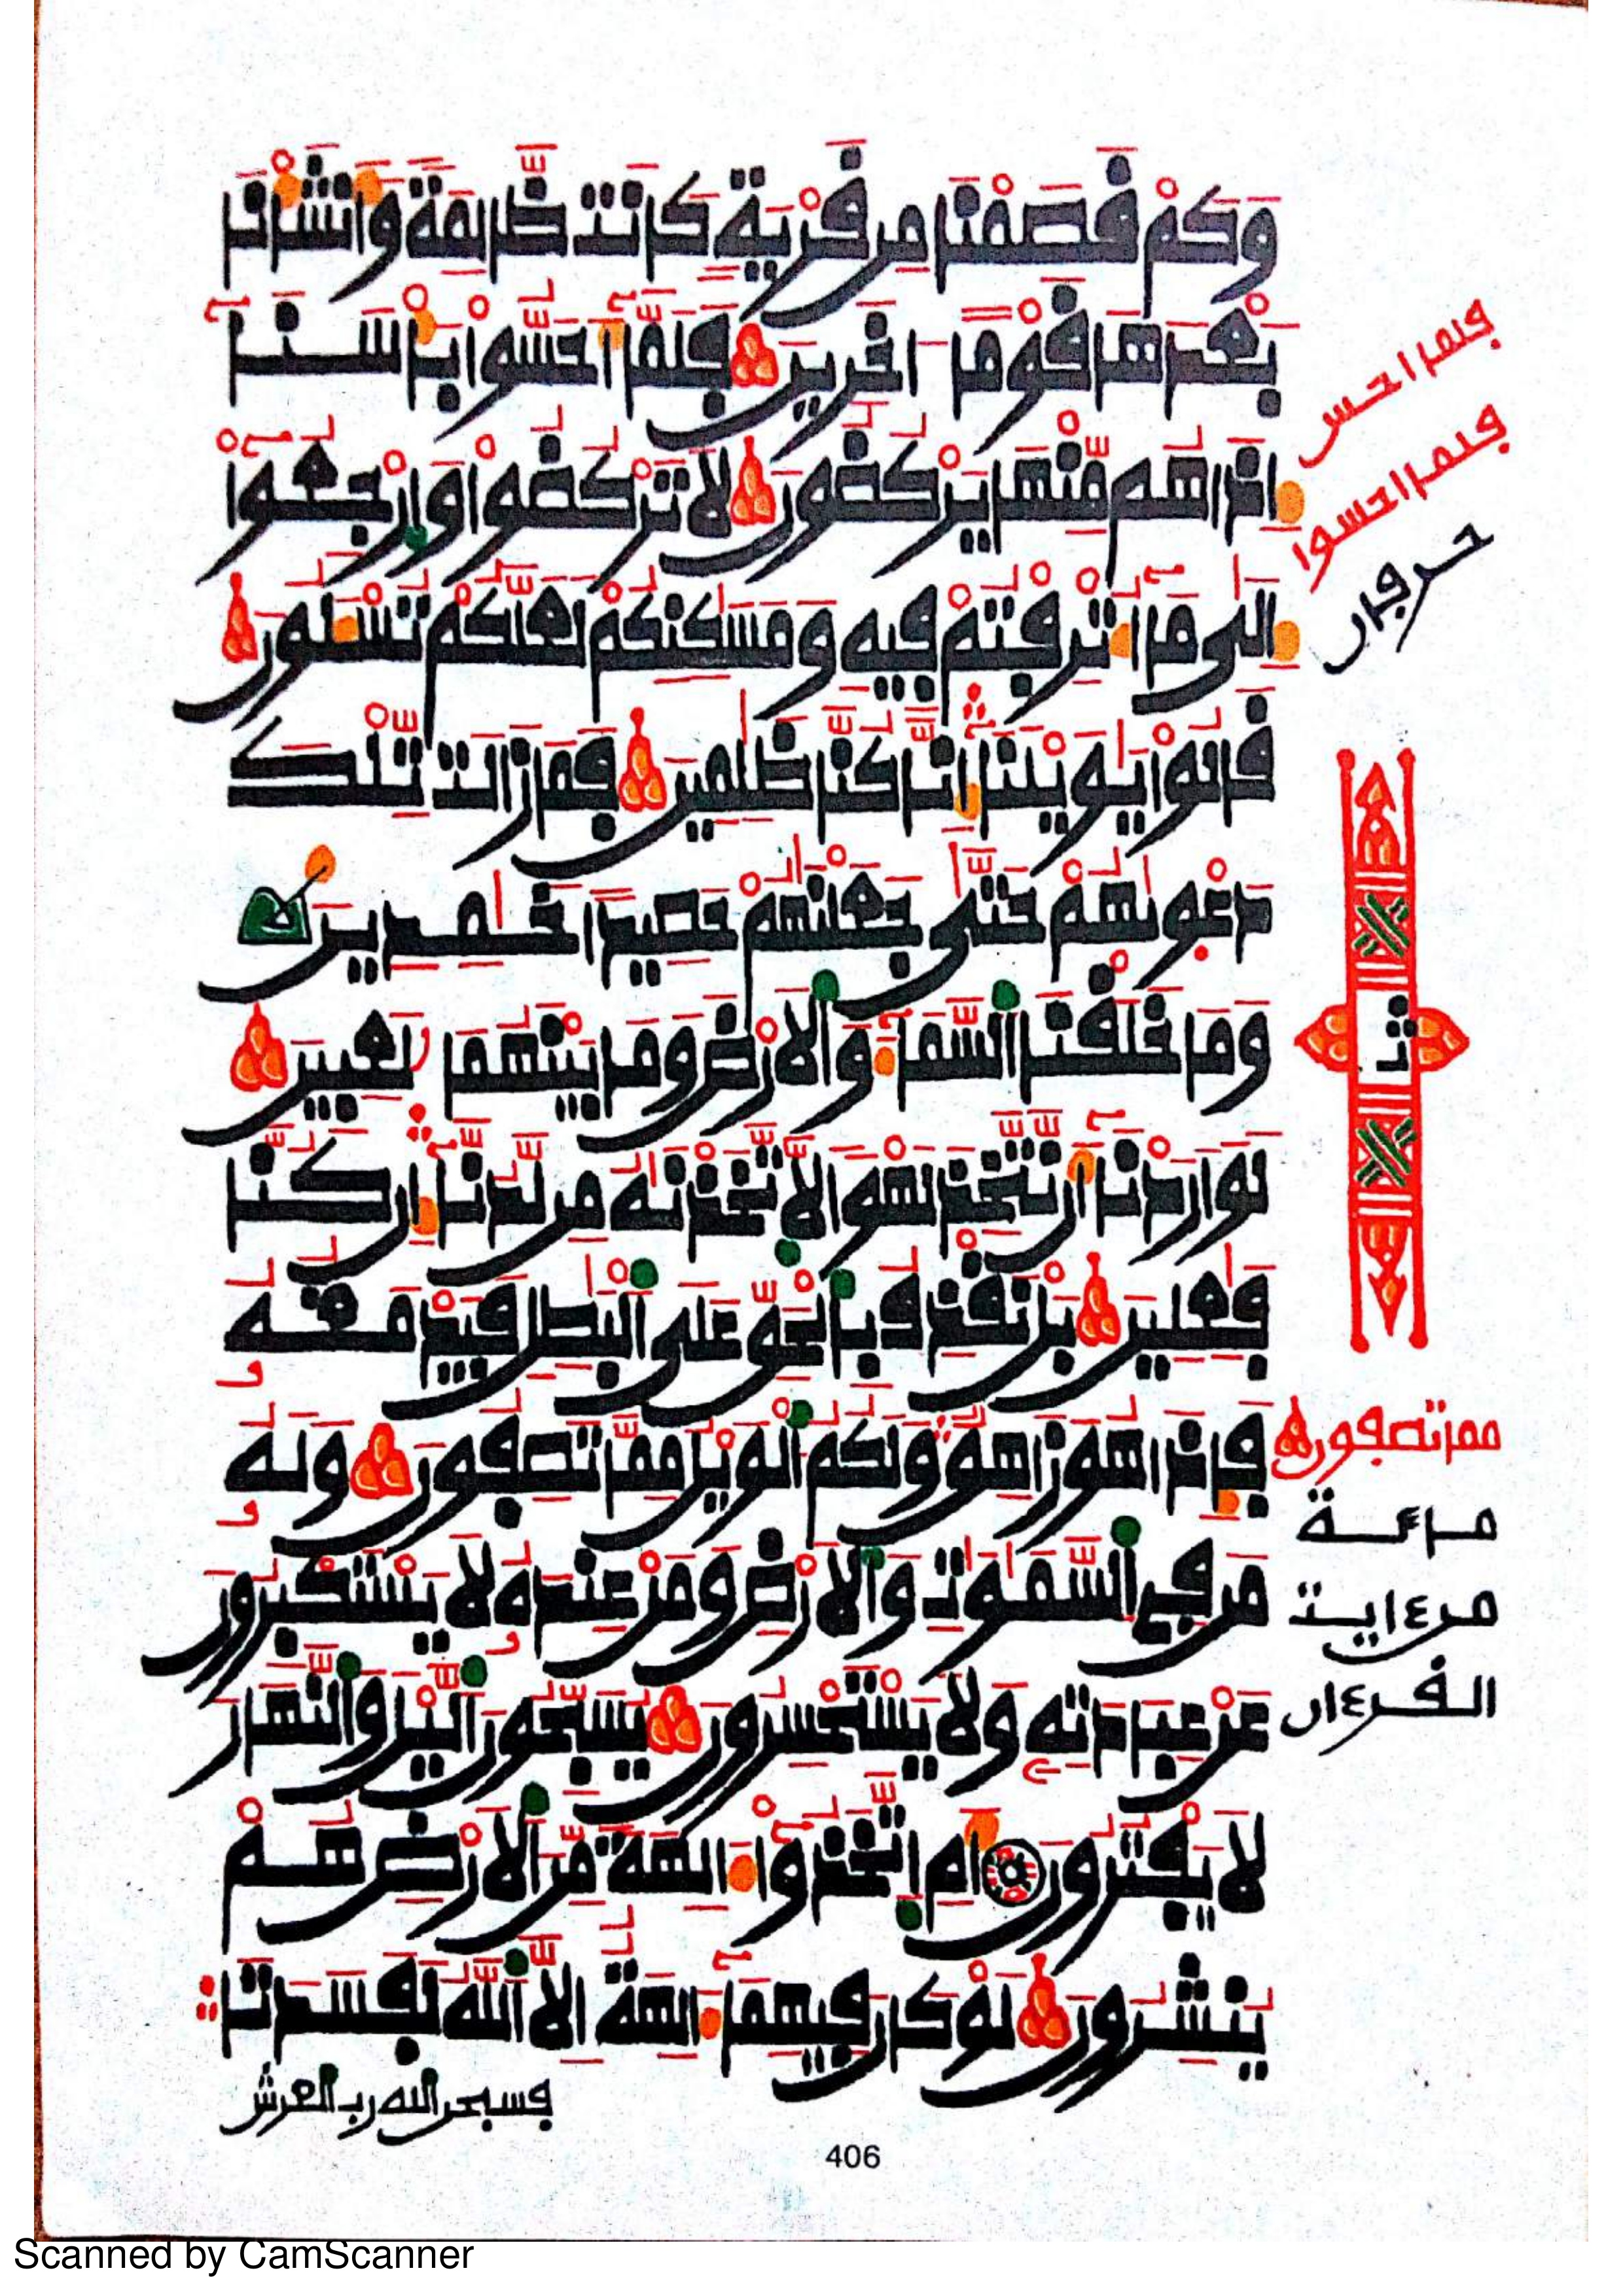 وَكَمْ قَصَمْنَا مِن قَرْيَةٍ كَانَتْ ظَالِمَةً وَأَنشَأْنَا
بَعْدَهَا قَوْمًا ـاخَرِينَ فَلَمَّا أَحَسُّوا بَأْسَنَا
إِذَا هُم مِّنْهَا يَرْكُضُونَ لَا تَرْكُضُوا وَارْجِعُوا
إِلَى مَا أُتْرِفْتُمْ فِيهِ وَمَسَٰكِنِكُمْ لَعَلَّكُمْ تُسْـَٔلُونَ
قَالُوا يَٰوَيْلَنَا إِنَّا كُنَّا ظَٰلِمِينَ فَمَا زَالَت تِّلْكَ
دَعْوَىٰهُمْ حَتَّىٰ جَعَلْنَٰهُمْ حَصِيدًا خَٰمِدِينَ
وَمَا خَلَقْنَا السَّمَاءَ وَالْأَرْضَ وَمَا بَيْنَهُمَا لَٰعِبِينَ
لَوْ أَرَدْنَا أَن نَّتَّخِذَ لَهْوًا لَّاتَّخَذْنَٰهُ مِن لَّدُنَّا إِن كُنَّا
فَٰعِلِينَ بَلْ نَقْذِفُ بِالْحَقِّ عَلَى الْبَٰطِلِ فَيَدْمَغُهُ
فَإِذَا هُوَ زَاهِقٌ وَلَكُمُ الْوَيْلُ مِمَّا تَصِفُونَ وَلَهُ
مَن فِي السَّمَٰوَٰتِ وَالْأَرْضِ وَمَنْ عِندَهُ لَا يَسْتَكْبِرُونَ
عَنْ عِبَادَتِهِ وَلَا يَسْتَحْسِرُونَ يُسَبِّحُونَ الَّيْلَ وَالنَّهَارَ
لَا يَفْتُرُونَ أَمِ اتَّخَذُوا ءَالِهَةً مِّنَ الْأَرْضِ هُمْ
يُنشِرُونَ لَوْ كَانَ فِيهِمَا ءَالِهَةٌ إِلَّا اللَّهُ لَفَسَدَتَا
فسبحن الله رب العرش
فلما احس
فلما احسوا
حرفان
ثـ
مما تصفون
مائة
من ءايت
القرءان
406
Scanned by CamScanner